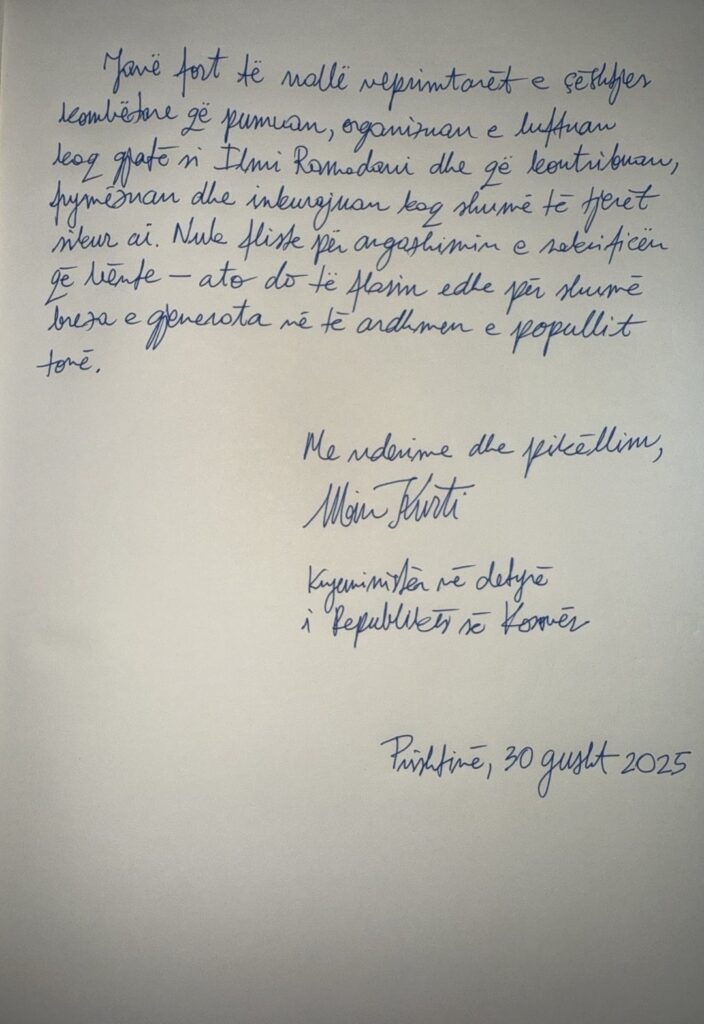 Janë fort të rrallë veprimtarët e çështjes
kombëtare që punuan, organizuan e luftuan
kaq gjatë si Ilmi Ramadani dhe që kontribuan,
frymëzuan dhe inkurajuan kaq shumë të tjerët
sikur ai. Nuk fliste për angazhimin e sakrificën
që bënte – ato do të flasin edhe për shumë
breza e gjenerata në të ardhmen e popullit
tonë.
Me nderime dhe pikëllim,
Albin Kurti
Kryeministër në detyrë
i Republikës së Kosovës
Prishtinë, 30 gusht 2025